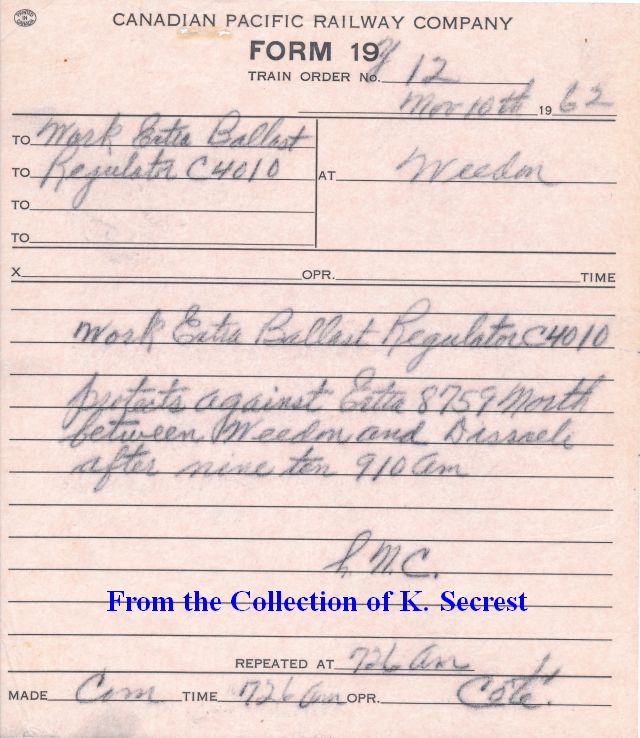 PRINTED IN CANADA
CANADIAN PACIFIC RAILWAY COMPANY
FORM 19 Y
TRAIN ORDER No. 12
Nov 10th 19 62
TO Work Extra Ballast
TO Regulator C4010 AT Weedon
TO
TO
X OPR. TIME
Work Extra Ballast Regulator C4010
protects against Extra 8759 North
between Weedon and Disraeli
after nine ten 910 am
From the Collection of K. Secrest
REPEATED AT 726 am
MADE Com TIME 726 am OPR. Coté